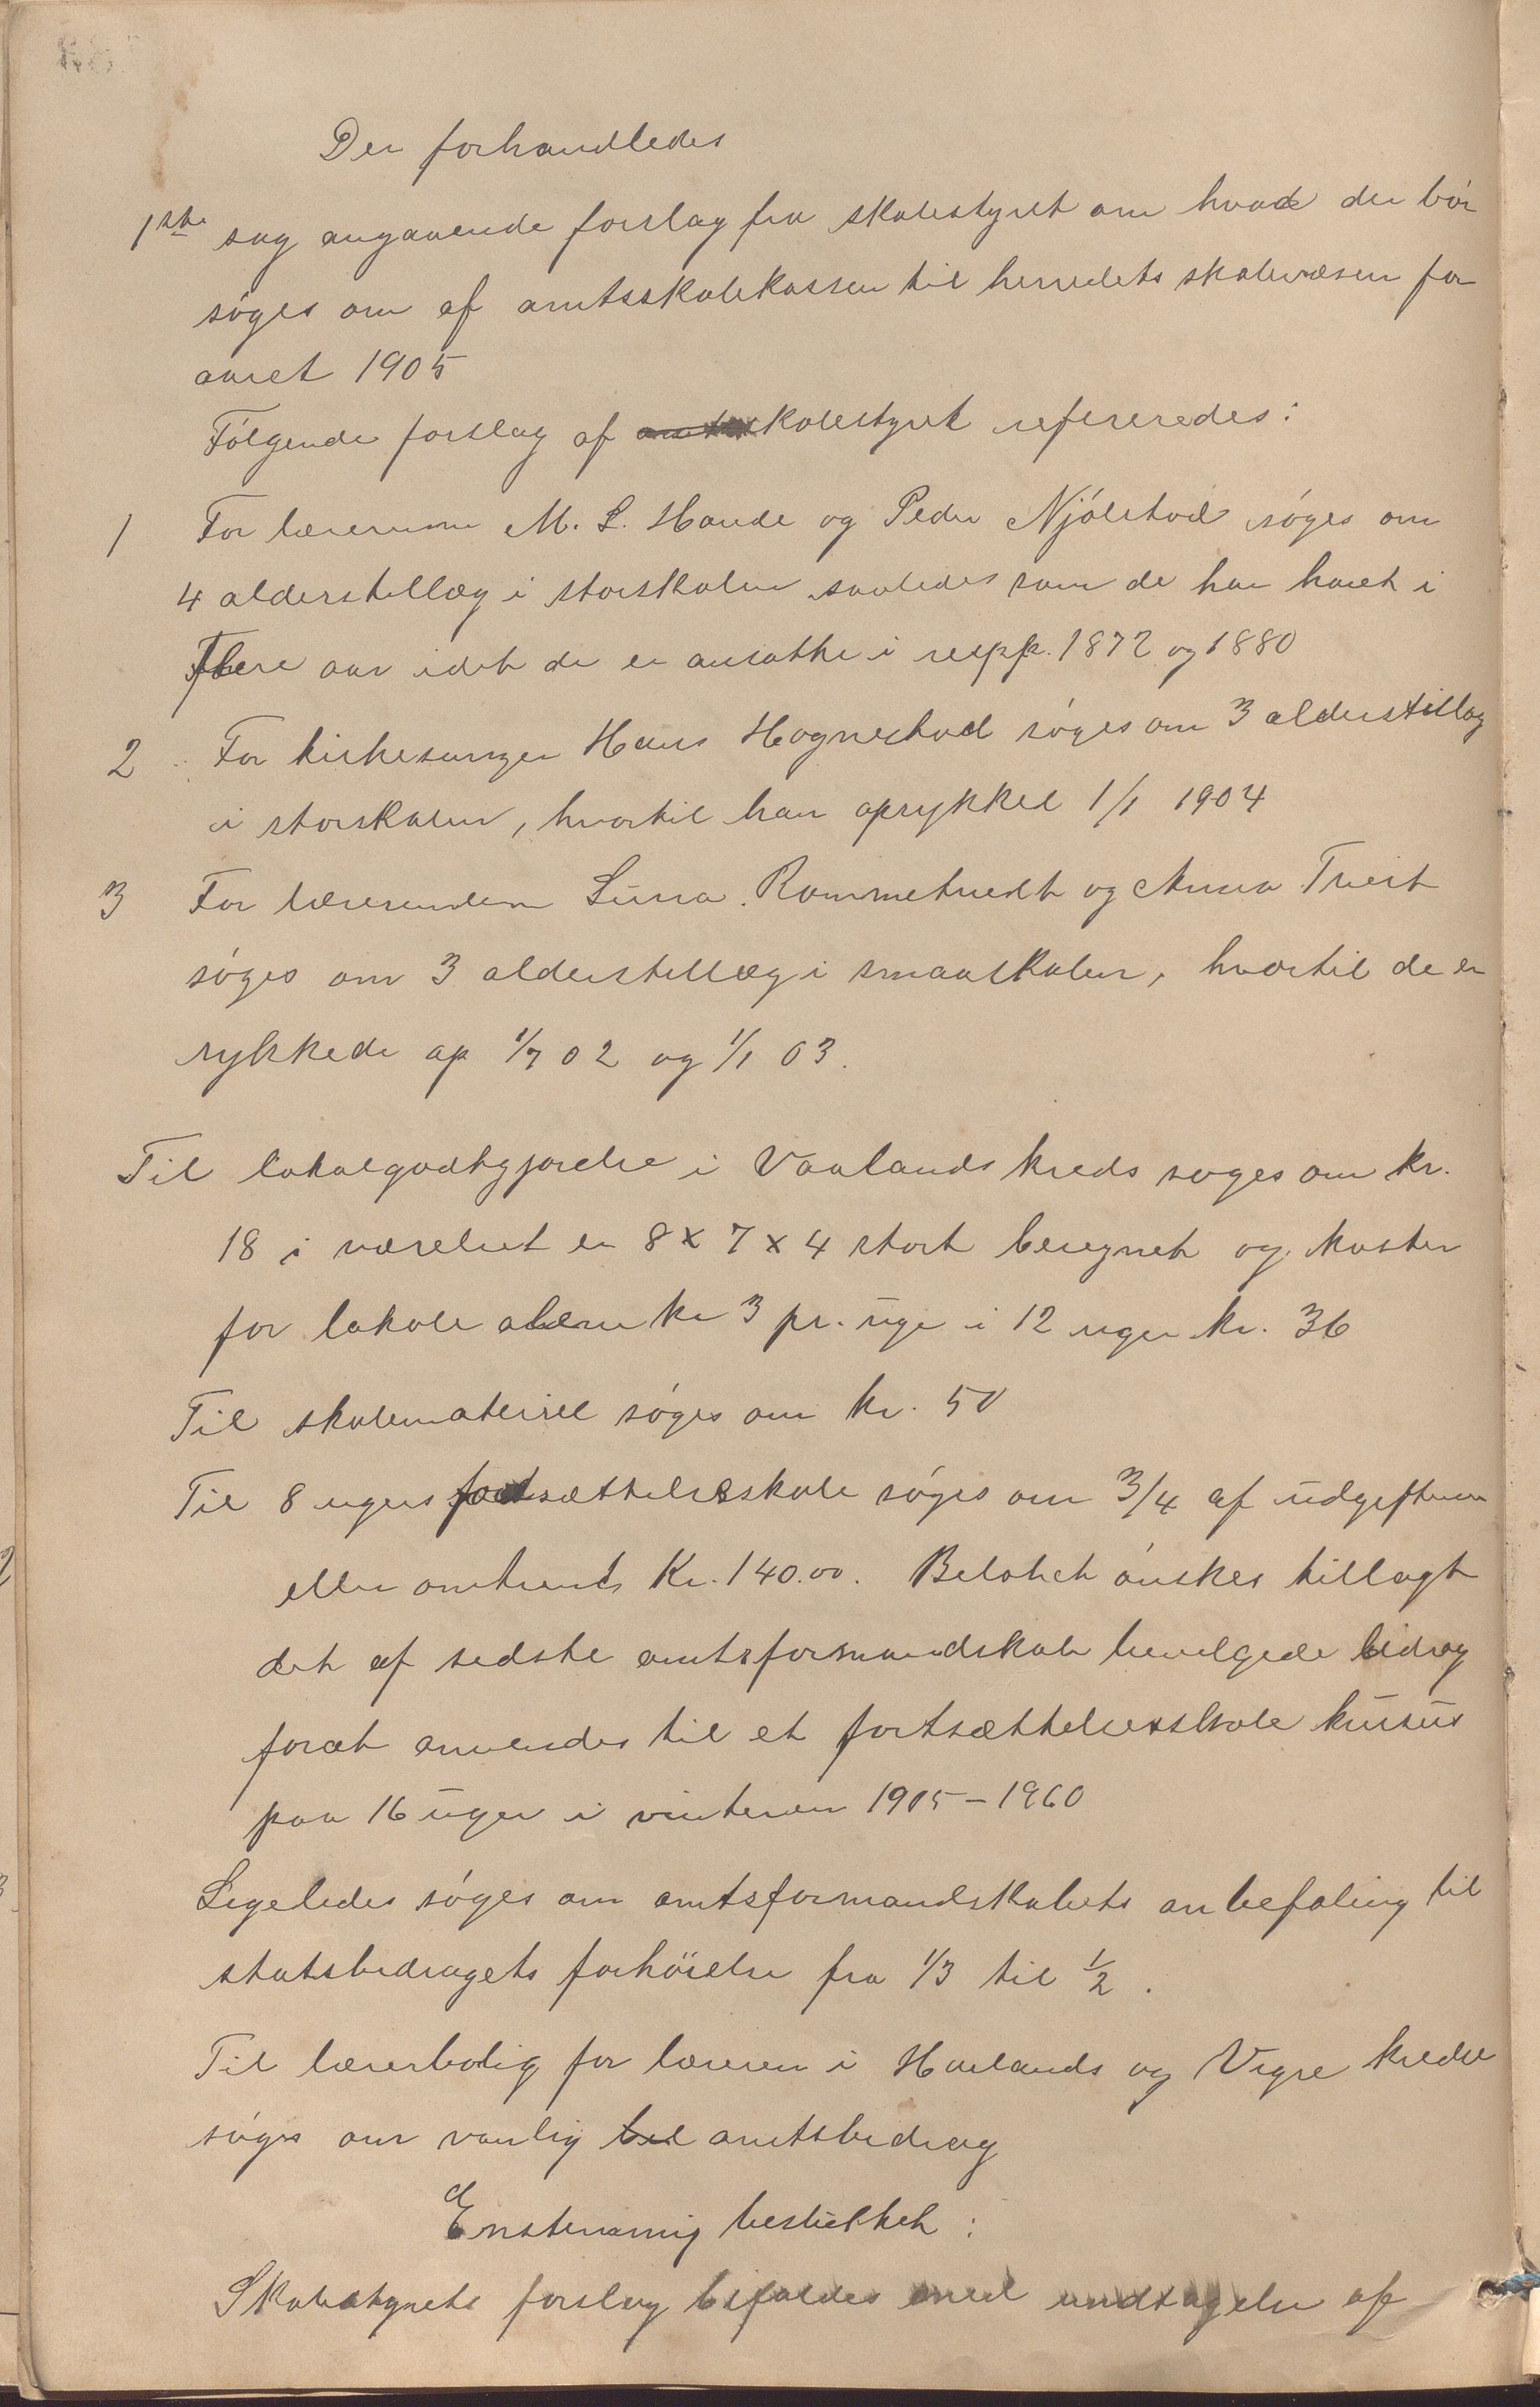 Der forhandledes
1ste sag angaaende forslag fra skolestyret om hvad der bör
söges om af amtsskolekassen til herredets skolevæsen for
aaret 1905
Fölgende forslag af skolestyret refereredes:
1 For lærerne M. L. Haude og Peder Njölstad söges om
4 alderstillæg i storskolen saaledes som de har havt i
flere aar idet de er ansatte i resp. 1872 og 1880
2 For kirkesanger Hans Hognestad söges om 3 alderstillæg
i storskolen, hvortil han oprykket 1/1 1904
3 For lærerinderne Lina Rommetvedt og Anna Tveit
söges om 3 alderstillæg i smaaskolen, hvortil de er
rykkede op 1/7 02 og 1/1 03.
Til lokalgodtgjørelse i Vaalands kreds søges om kr.
18 i værelset er 8 x 7 x 4 stort beregnet og koster
for lokale alene kr 3 pr. uge i 12 uger kr. 36
Til skolemateriel söges om kr. 50
Til 8 ugers fortsættelsesskole söges om 3/4 af udgifterne
eller omtrent Kr. 140.00. Beløbet önskes tillagt
det af sidste amtsformandskab bevilgede bidrag
forat anvendes til et fortsættelsesskole kursus
paa 16 uger i vinteren 1905-1960
Ligeledes söges om amtsformandskabets anbefaling til
statsbidragets forhöielse fra 1/3 til 1/2.
Til lærerbolig for læreren i Haulands og Vigre kredse
söges om vanlig amtsbidrag
Enstemmig besluttet:
Skolestyrets forslag bifaldes med undtagelse af